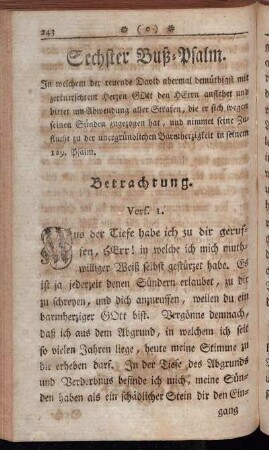 243 * ( o ) *
Sechster Buß-Psalm.
In welchem der reuende David abermal demüthigst mit
zerknirschtem Herzen GOtt den HErrn anflehet und
bittet um Abwendung aller Strafen, die er sich wegen
seinen Sünden zugezogen hat, und nimmet seine Zu-
flucht zu der unergründlichen Barmherzigkeit in seinem
129. Psalm.
Betrachtung.
Vers. 1.
Aus der Tiefe habe ich zu dir geruf-
fen, HErr! in welche ich mich muth-
williger Weiß selbst gestürzet habe. Es
ist ja jederzeit denen Sündern erlaubet, zu dir
zu schreyen, und dich anzuruffen, weilen du ein
barmherziger GOtt bist. Vergönne demnach,
daß ich aus dem Abgrund, in welchem ich selt
so vielen Jahren liege, heute meine Stimme zu
dir erheben darf. In der Tiefe des Abgrunds
und Verderbnus befinde ich mich, meine Sün-
den haben als ein schädlicher Stein dir den Ein-
gang